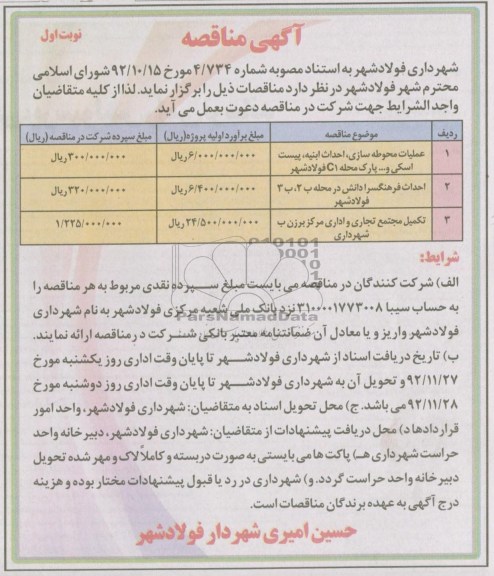 آگهی مناقصه
نوبت اول
شهرداری فولادشهر به استناد مصوبه شماره ۴/۷۳۴ مورخ ۹۲/۱۰/۱۵ شورای اسلامی
محترم شهر فولادشهر در نظر دارد مناقصات ذیل را برگزار نماید. لذا از کلیه متقاضیان
واجد الشرایط جهت شرکت در مناقصه دعوت بعمل می آید.
ردیف موضوع مناقصه مبلغ برآورد اولیه پروژه(ریال) مبلغ سپرده شرکت در مناقصه (ریال)
۱ عملیات محوطه سازی، احداث ابنیه، پیست ۶/۰۰۰/۰۰۰/۰۰۰ ریال ۳۰۰/۰۰۰/۰۰۰ ریال
اسکی و... پارک محله C۱ فولادشهر
۲ احداث فرهنگسرا دانش در محله ب ۲، ب ۳ ۶/۴۰۰/۰۰۰/۰۰۰ ریال ۳۲۰/۰۰۰/۰۰۰ ریال
فولادشهر
۳ تکمیل مجتمع تجاری و اداری مرکز برزن ب ۲۴/۵۰۰/۰۰۰/۰۰۰ ریال ۱/۲۲۵/۰۰۰/۰۰۰
شهرداری
شرایط:
الف) شرکت کنندگان در مناقصه می بایست مبلغ سپرده نقدی مربوط به هر مناقصه را
به حساب سیبا ۳۱۰۰۰۰۱۷۷۳۰۰۸ نزد بانک ملی شعبه مرکزی فولادشهر به نام شهرداری
فولادشهر واریز و یا معادل آن ضمانتنامه معتبر بانکی شرکت در مناقصه ارائه نمایند.
ب) تاریخ دریافت اسناد از شهرداری فولادشهر تا پایان وقت اداری روز یکشنبه مورخ
۹۲/۱۱/۲۷ و تحویل آن به شهرداری فولادشهر تا پایان وقت اداری روز دوشنبه مورخ
۹۲/۱۱/۲۸ می باشد. ج) محل تحویل اسناد به متقاضیان: شهرداری فولادشهر، واحد امور
قراردادها د) محل دریافت پیشنهادات از متقاضیان: شهرداری فولادشهر، دبیرخانه واحد
حراست شهرداری هـ) پاکت ها می بایستی به صورت دربسته و کاملاً لاک و مهر شده تحویل
دبیرخانه واحد حراست گردد. و) شهرداری در رد یا قبول پیشنهادات مختار بوده و هزینه
درج آگهی به عهده برندگان مناقصات است.
حسین امیری شهردار فولادشهر
ParsNamadData